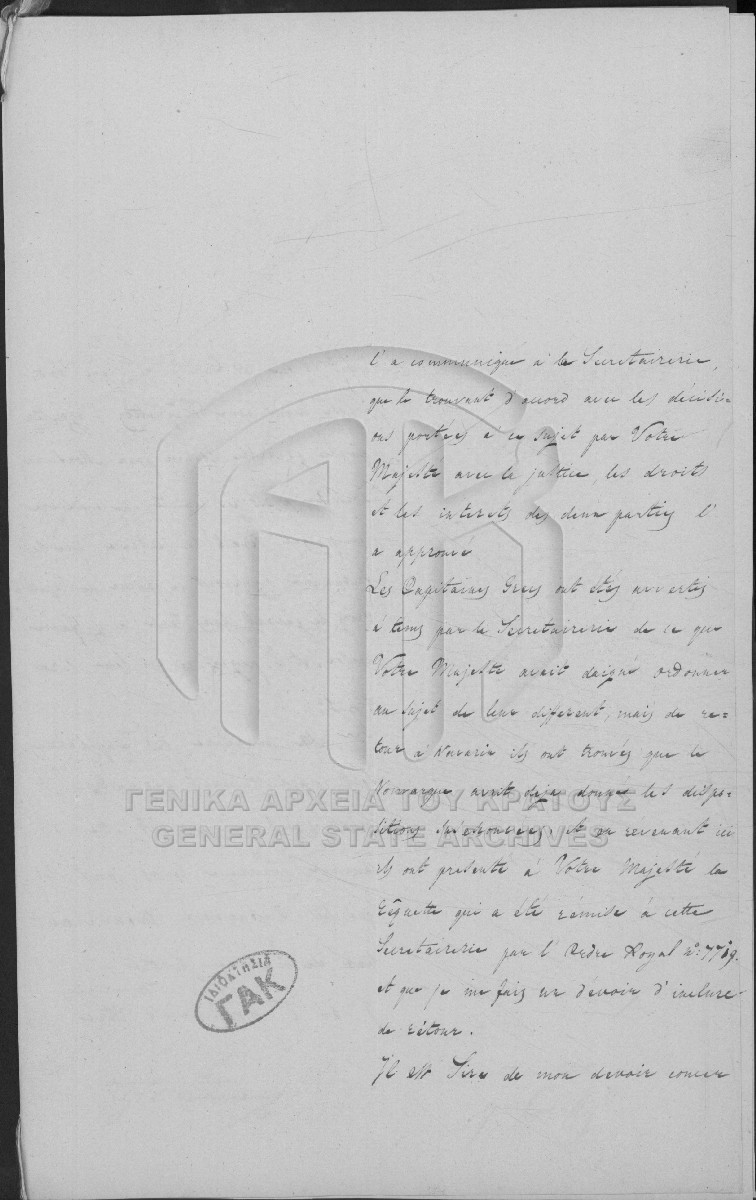 l'a communiqué à la Secretairerie,
que le trouvant d'accord avec les décisi-
ons portées a ce sujet par Votre
Majesté avec la justice, les droits
et les interets des deux parties l'
a approuvé
Les Capitaines Grecs ont étés avertis
à tems par la Secretairerie de ce que
Votre Majesté avait daigné ordonner
au sujet de leur different, mais de re=
tour à Navarin ils ont trouvés que le
Nomarque avait deja donné les dispo-
sitions susénoncées, et en revenant ici
ils ont presenté à Votre Majesté la
Requette qui a été rémise à cette
Secretairerie par l'Ordre Royal n:
et que je me fais un dévoir d'inclure
de rétour.
Il est Sire de mon devoir
ΓΕΝΙΚΑ ΑΡΧΕΙΑ ΤΟΥ ΚΡΑΤΟΥΣ
GENERAL STATE ARCHIVES
ΙΔΙΟΚΤΗΣΙΑ
ΓΑΚ